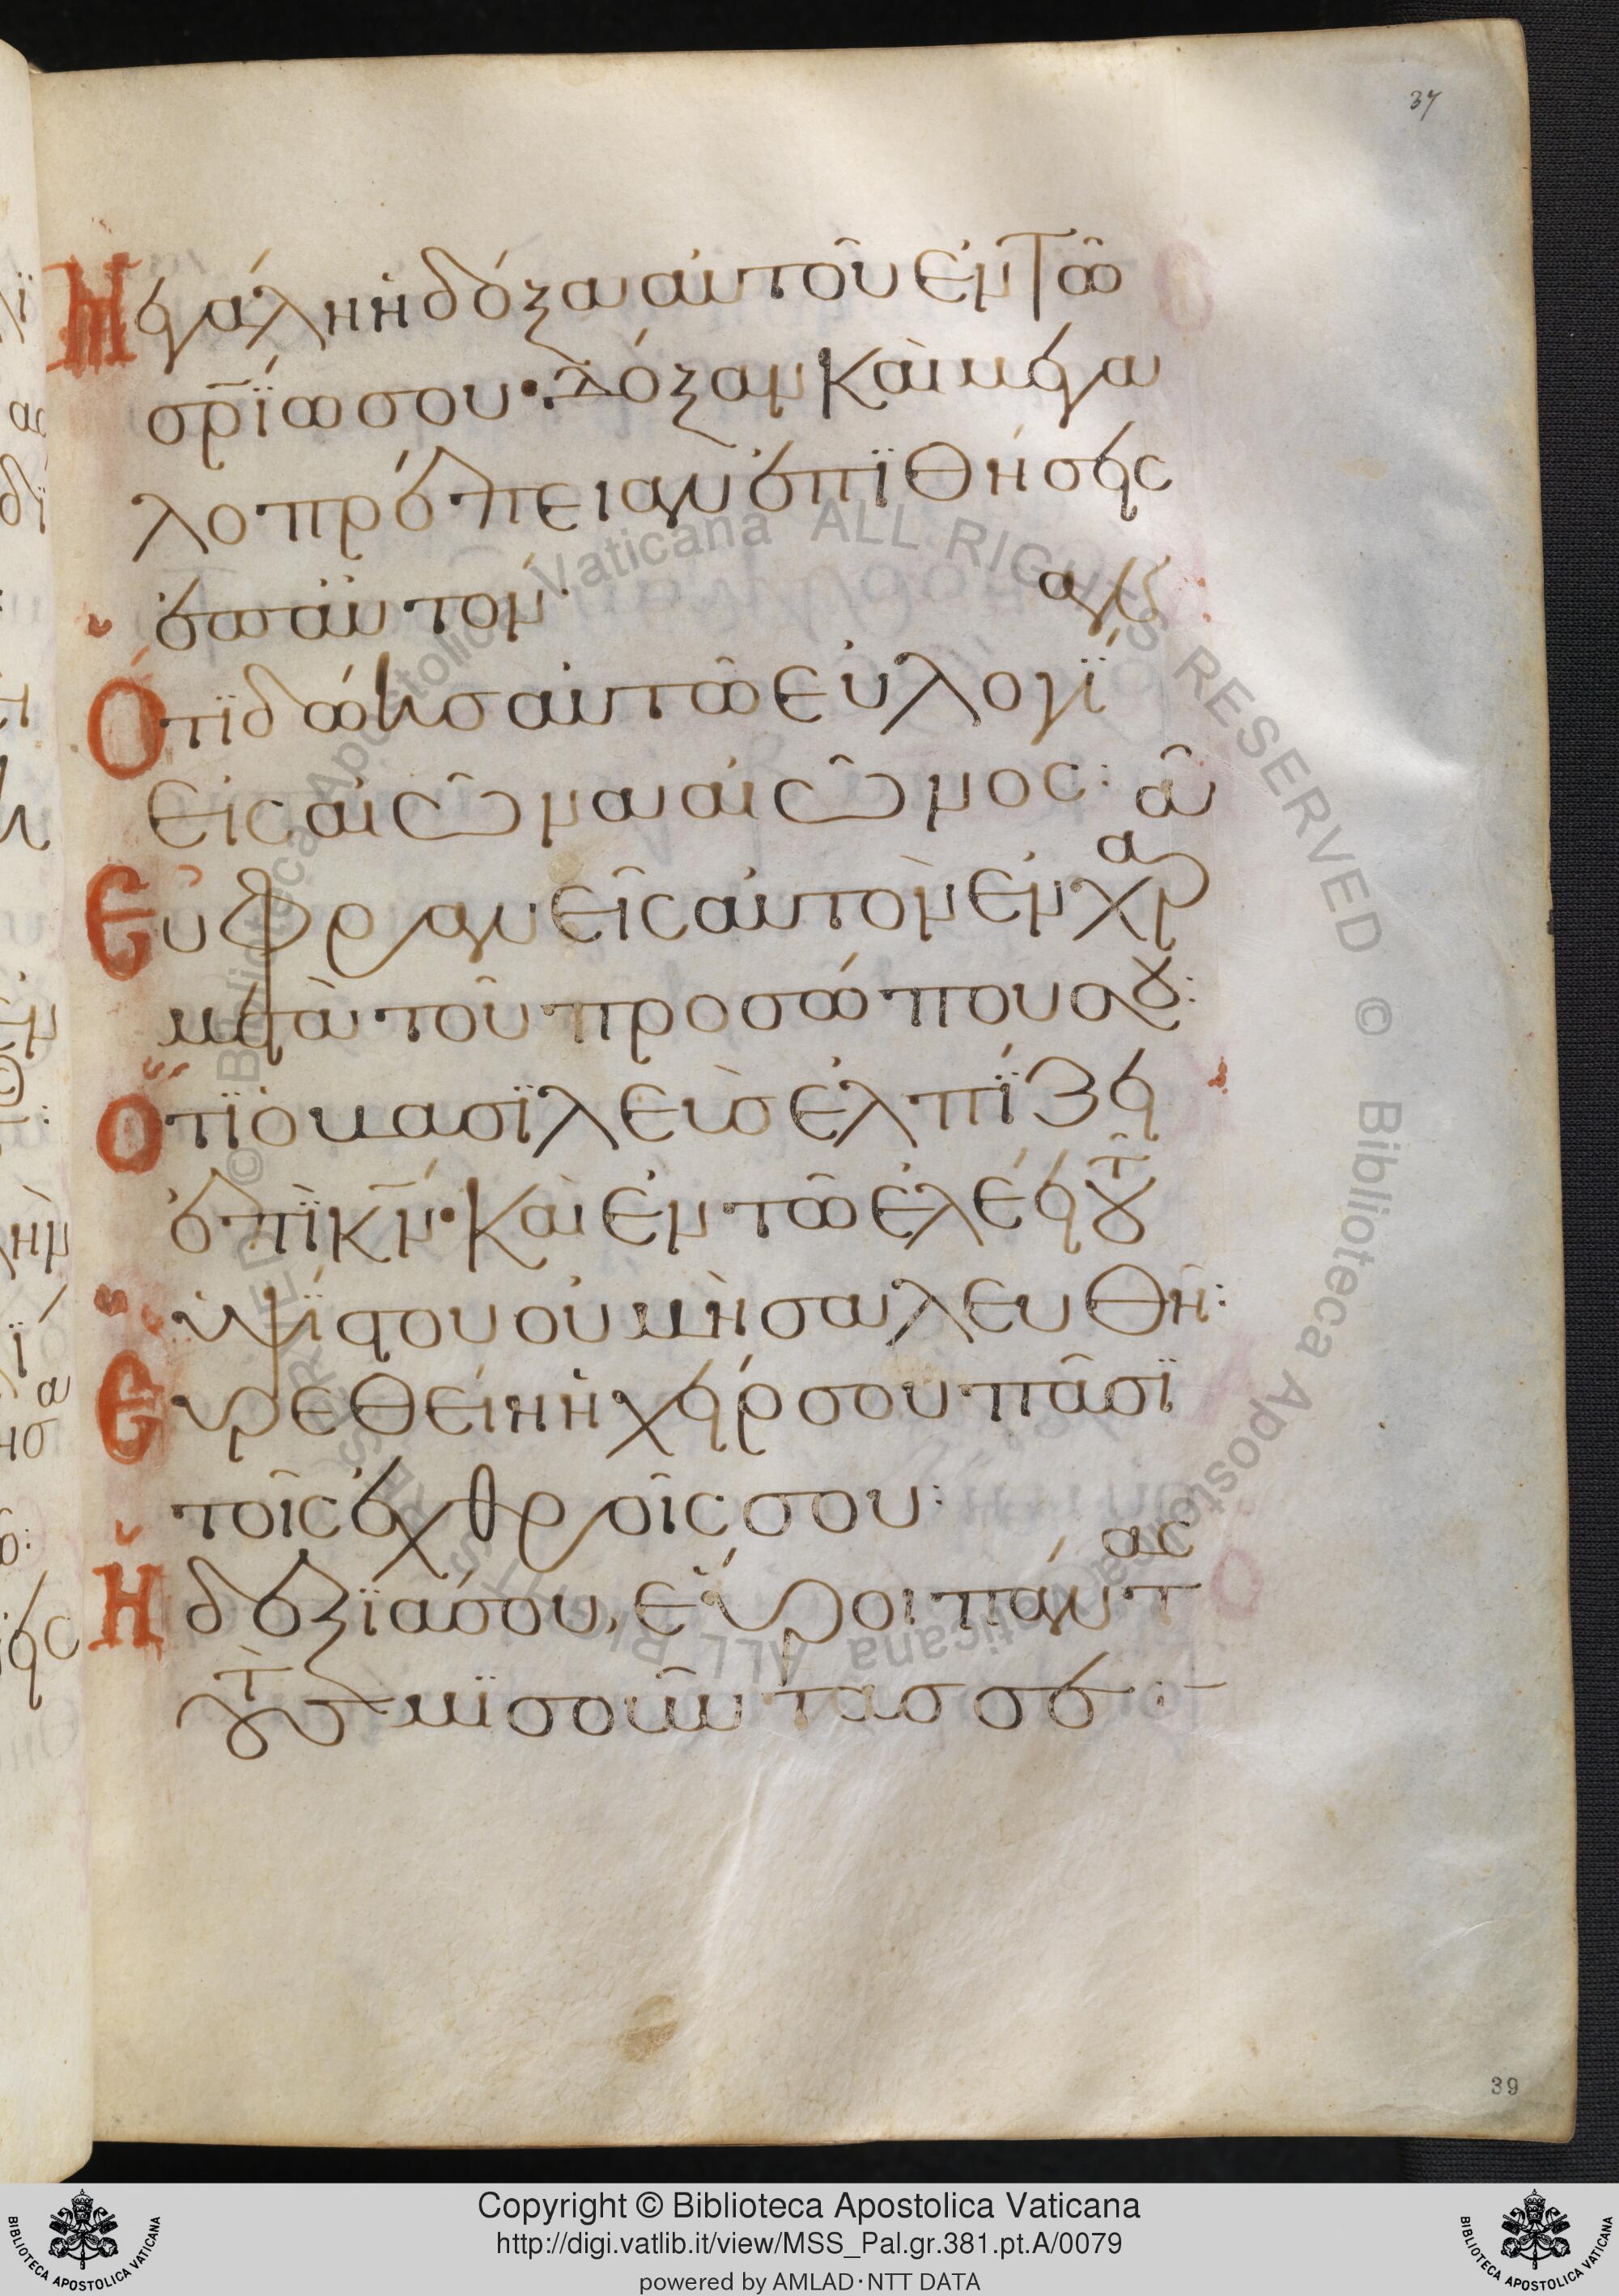 37
Μεγάλη ἡ δόξα αὐτοῦ ἐν τῶ
σρ̅ίω σου· δόξαν καὶ μεγα
λοπρέπειαν ἐπϊθήσεις
ἐπ αὐτον·
Ὅτϊ δώσεις αὐτῶ εὐλογί
εἰς αἰῶνα αἰῶνος: αν
Εὐφρανεῖς αὐτὸν ἐν χαρα
μετὰ τοῦ προσώπου σου:
Ὅτϊ ὁ βασϊλεὺς ἐλπίζει
ἐπὶ κ̅ν· καὶ ἐν τῶ ἐλέει τοῦ
ὑψίστου οὐ μὴ σαλευθῆ:
Εὑρεθείη ἡ χείρ σου πᾶσϊ
τοῖς ἐχθροῖς σου:
Ἡ δεξϊά σου, εὕροι πάντας
τοὺς μϊσοῦντας σε:-
39
© Biblioteca Apostolica Vaticana ALL RIGHTS RESERVED © Biblioteca Apostolica Vaticana ALL RIGHTS RESERVED
BIBLIOTECA APOSTOLICA VATICANA
Copyright © Biblioteca Apostolica Vaticana
http://digi.vatlib.it/view/MSS_Pal.gr.381.pt.A/0079
powered by AMLAD·NTT DATA
BIBLIOTECA APOSTOLICA VATICANA